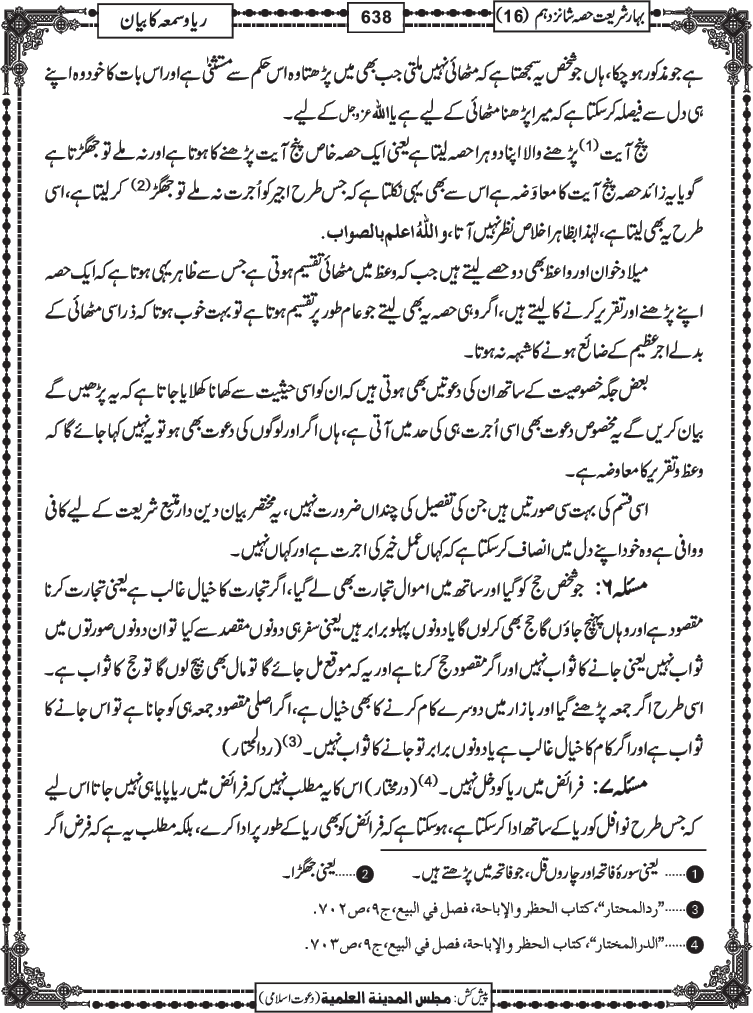 بہار شریعت حصہ شانزدہم (16)
638
ریا و سمعہ کا بیان
ہے جو مذکور ہو چکا، ہاں جو شخص یہ سمجھتا ہے کہ مٹھائی نہیں ملتی جب بھی میں پڑھتا وہ اس حکم سے مستثنیٰ ہے اور اس بات کا خود وہ اپنے
ہی دل سے فیصلہ کر سکتا ہے کہ میرا پڑھنا مٹھائی کے لیے ہے یا اللہ عزوجل کے لیے۔
پنج آیت(1) پڑھنے والا اپنا دوہرا حصہ لیتا ہے یعنی ایک حصہ خاص پنج آیت پڑھنے کا ہوتا ہے اور نہ ملے تو جھگڑتا ہے
گویا یہ زائد حصہ پنج آیت کا معاوَضہ ہے اس سے بھی یہی نکلتا ہے کہ جس طرح اجیر کو اُجرت نہ ملے تو جھگڑ(2) کر لیتا ہے، اسی
طرح یہ بھی لیتا ہے، لہٰذا بظاہر اخلاص نظر نہیں آتا، واللہُ اعلم بالصواب.
میلاد خوان اور واعظ بھی دو حصے لیتے ہیں جب کہ وعظ میں مٹھائی تقسیم ہوتی ہے جس سے ظاہر یہی ہوتا ہے کہ ایک حصہ
اپنے پڑھنے اور تقریر کرنے کا لیتے ہیں، اگر وہی حصہ یہ بھی لیتے جو عام طور پر تقسیم ہوتا ہے تو بہت خوب ہوتا کہ ذرا سی مٹھائی کے
بدلے اجر عظیم کے ضائع ہونے کا شبہہ نہ ہوتا۔
بعض جگہ خصوصیت کے ساتھ ان کی دعوتیں بھی ہوتی ہیں کہ ان کو اسی حیثیت سے کھانا کھلایا جاتا ہے کہ یہ پڑھیں گے
بیان کریں گے یہ مخصوص دعوت بھی اسی اُجرت ہی کی حد میں آتی ہے، ہاں اگر اور لوگوں کی دعوت بھی ہو تو یہ نہیں کہا جائے گا کہ
وعظ و تقریر کا معاوضہ ہے۔
اسی قسم کی بہت سی صورتیں ہیں جن کی تفصیل کی چنداں ضرورت نہیں، یہ مختصر بیان دین دار متبع شریعت کے لیے کافی
و وافی ہے وہ خود اپنے دل میں انصاف کر سکتا ہے کہ کہاں عمل خیر کی اجرت ہے اور کہاں نہیں۔
مسئلہ ۶: جو شخص حج کو گیا اور ساتھ میں اموال تجارت بھی لے گیا، اگر تجارت کا خیال غالب ہے یعنی تجارت کرنا
مقصود ہے اور وہاں پہنچ جاؤں گا حج بھی کر لوں گا یا دونوں پہلو برابر ہیں یعنی سفر ہی دونوں مقصد سے کیا تو ان دونوں صورتوں میں
ثواب نہیں یعنی جانے کا ثواب نہیں اور اگر مقصود حج کرنا ہے اور یہ کہ موقع مل جائے گا تو مال بھی بیچ لوں گا تو حج کا ثواب ہے۔
اسی طرح اگر جمعہ پڑھنے گیا اور بازار میں دوسرے کام کرنے کا بھی خیال ہے، اگر اصلی مقصود جمعہ ہی کو جانا ہے تو اس جانے کا
ثواب ہے اور اگر کام کا خیال غالب ہے یا دونوں برابر تو جانے کا ثواب نہیں۔(3) (ردالمحتار)
مسئلہ ۷: فرائض میں ریا کو دخل نہیں۔(4) (درمختار) اس کا یہ مطلب نہیں کہ فرائض میں ریا پایا ہی نہیں جاتا اس لیے
کہ جس طرح نوافل کو ریا کے ساتھ ادا کر سکتا ہے، ہو سکتا ہے کہ فرائض کو بھی ریا کے طور پر ادا کرے، بلکہ مطلب یہ ہے کہ فرض اگر
1 ......یعنی سورۂ فاتحہ اور چاروں قل، جو فاتحہ میں پڑھتے ہیں۔ 2 ......یعنی جھگڑا۔
3 ......"ردالمحتار"، کتاب الحظر والإباحة، فصل في البيع، ج۹، ص۷۰۲.
4 ......"الدرالمختار"، کتاب الحظر والإباحة، فصل في البيع، ج۹، ص۷۰۳.
پیش کش: مجلس المدينة العلمية (دعوت اسلامی)